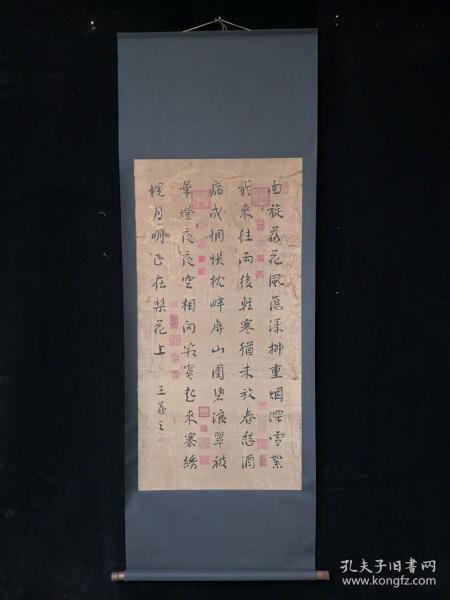 面旋落花風蕩漾柳重烟深雪絮
飛來往雨後輕寒猶未放春愁酒
病成惆悵枕畔屏山圍碧浪翠被
華燈夜夜空相向寂寞起來褰繡
幌月明正在梨花上 王羲之
孔夫子旧书网
www.kongfz.com